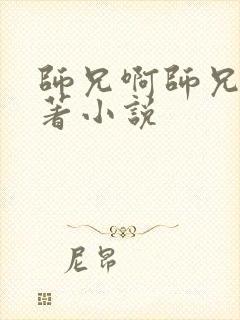 師兄啊師兄
著小説
尼昂